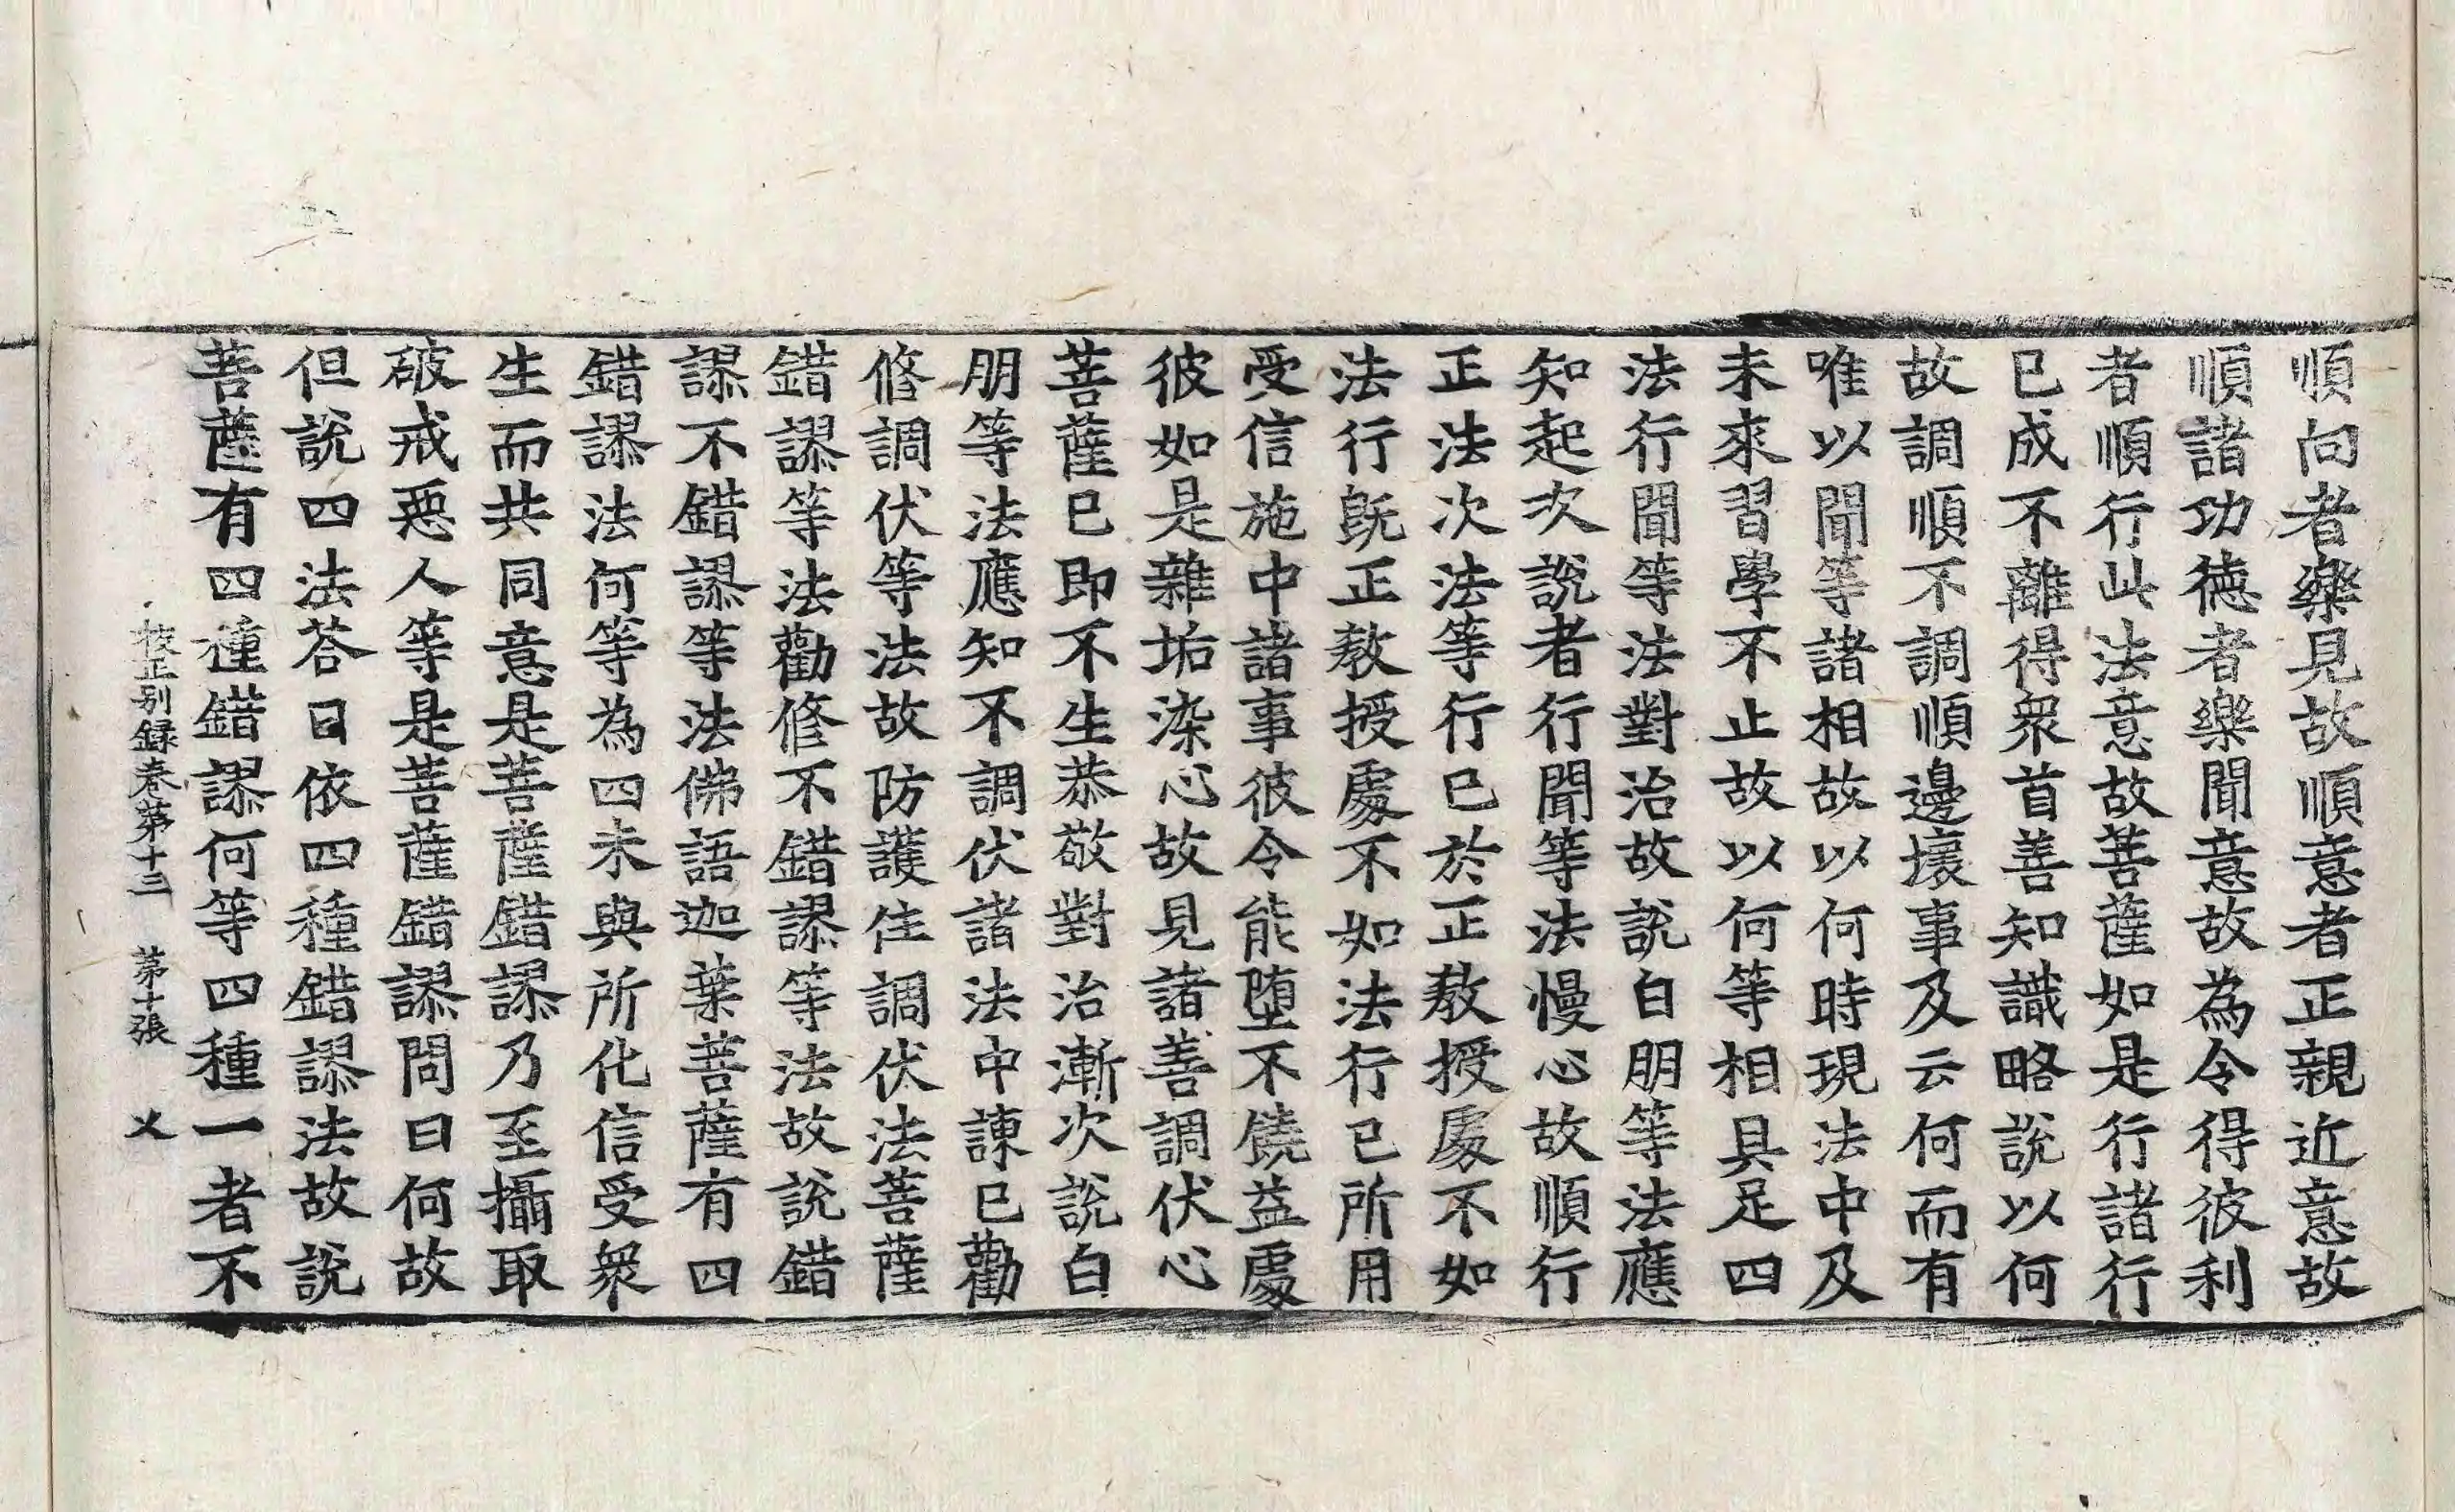 順向者樂見故順意者正親近意故
順諸功徳者樂聞意故為令得彼利
者順行此法意故菩薩如是行諸行
已成不離得衆首善知識略說以何
故調順不調順邊壞事及云何而有
唯以聞等諸相故以何時現法中及
未來習學不止故以何等相具足四
法行聞等法對治故說白朋等法應
知起次說者行聞等法慢心故順行
正法次法等行已於正教授處不如
法行旣正教授處不如法行已所用
受信施中諸事彼令能墮不饒益處
彼如是雜垢染心故見諸善調伏心
菩薩已即不生恭敬對治漸次說白
朋等法應知不調伏諸法中諫已勸
修調伏等法故防護住調伏法菩薩
錯謬等法勸修不錯謬等法故說錯
謬不錯謬等法佛語迦葉菩薩有四
錯謬法何等為四未與所化信受衆
生而共同意是菩薩錯謬乃至攝取
破戒惡人等是菩薩錯謬問曰何故
但說四法荅曰依四種錯謬法故說
菩薩有四種錯謬何等四種一者不
校正别錄卷第十三 第十張 㐅